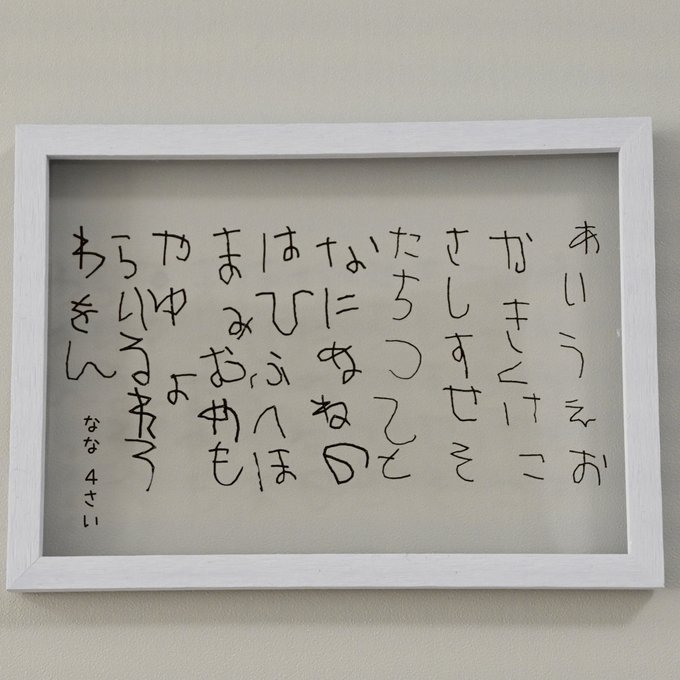 あいうえお
かきくけこ
さしすせそ
たちつてと
なにぬねの
はひふへほ
まみむめも
やゆよ
らりるれろ
わをん
なな 4さい